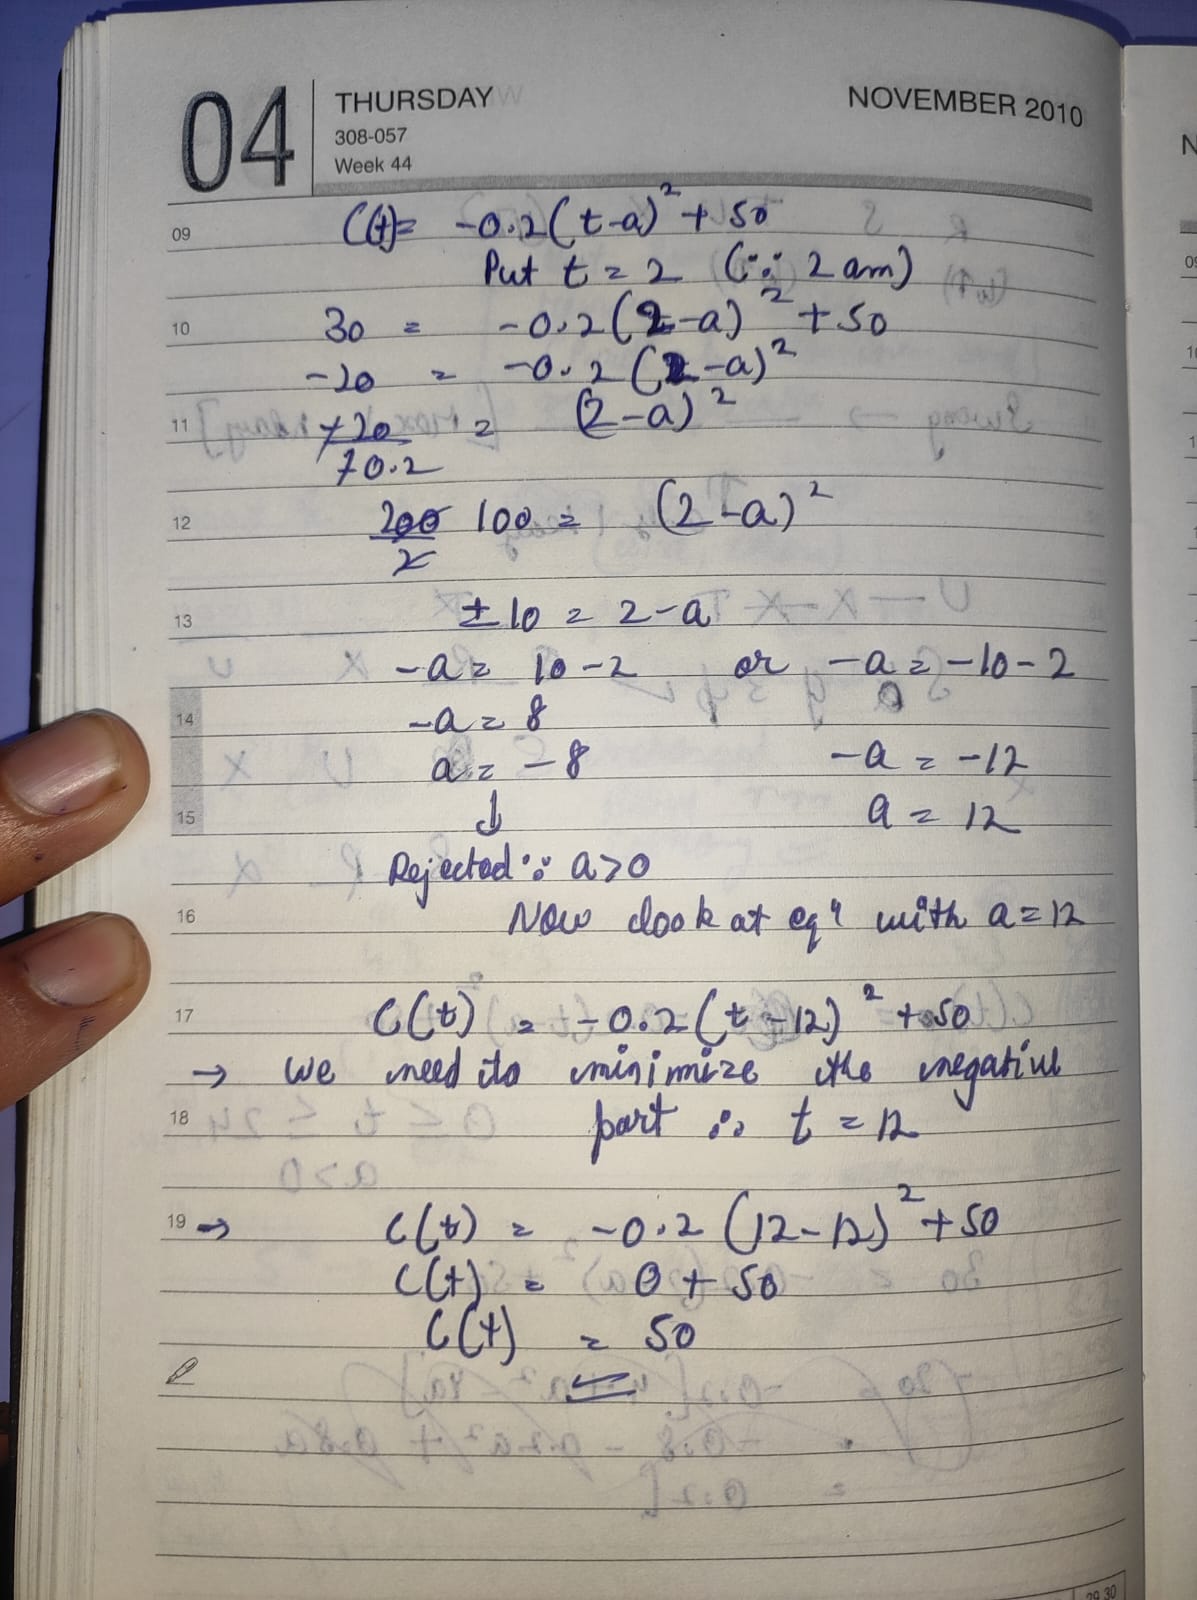 04 THURSDAY NOVEMBER 2010
308-057
Week 44
09 C(t)= -0.2(t-a)² + 50
Put t = 2 (∵ 2 am)
10 30 = -0.2(2-a)² + 50
-20 = -0.2(2-a)²
11 -20/-0.2 = (2-a)²
12 200/2 100 = (2-a)²
13 ±10 = 2-a
-a = 10-2 or -a = -10-2
14 -a = 8
a = -8 -a = -12
15 ↓ a = 12
Rejected ∵ a>0
16 Now look at eqn with a=12
17 C(t) = -0.2(t-12)² + 50
→ we need to minimize the negative
18 part ∴ t = 12
19 → C(t) = -0.2(12-12)² + 50
C(t) = 0 + 50
C(t) = 50
29 30